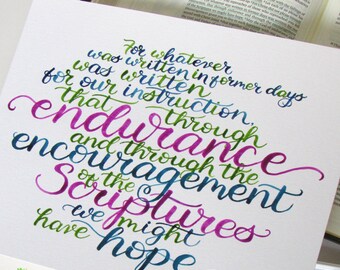 For whatever
was written in former days
was written
for our instruction,
that through
endurance
and through the
encouragement
of the
Scriptures
we might
have hope